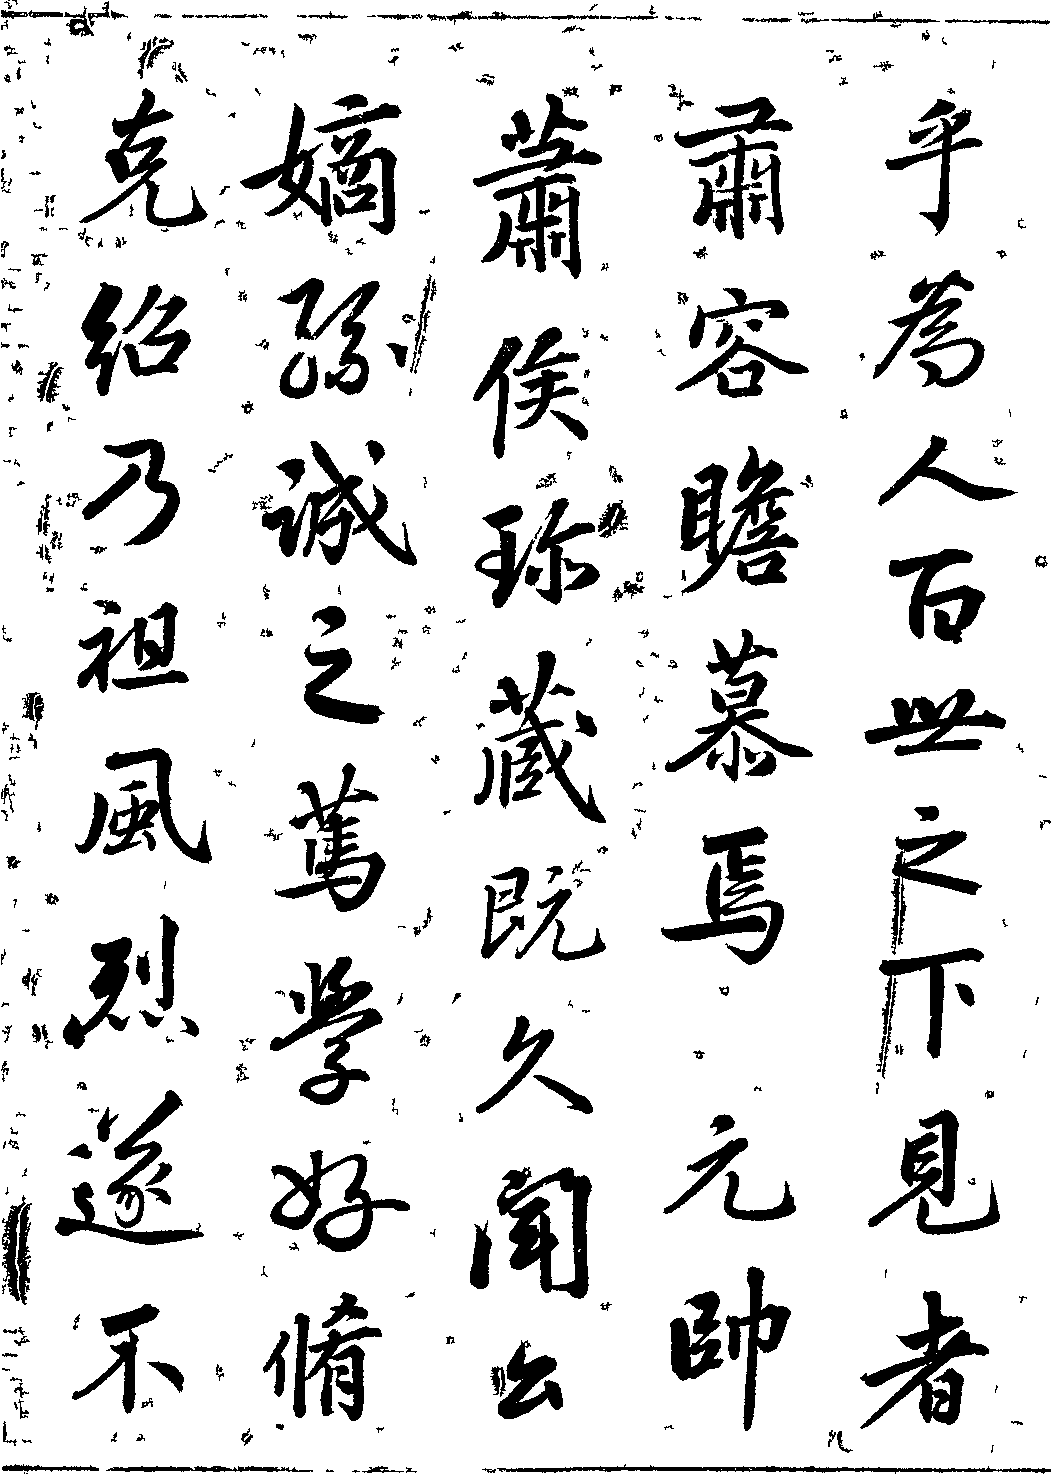 乎為人百世之下見者
肅容瞻慕焉　元帥
蕭侯珎蔵既久聞公
嫡孫誠之篤學好脩
克紹乃祖風烈遂不